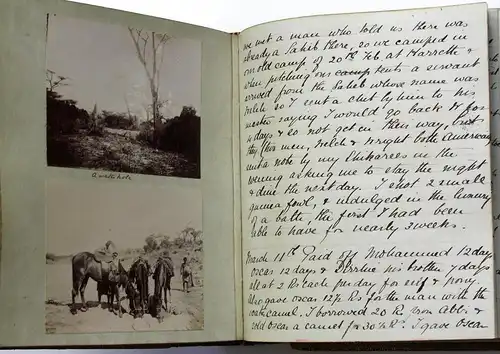 A well hole
we met a man who told us there was
already a Sahib there, so we camped in
our old camp of 20th Feb. at Harrethe &
when pitching our camp tents a servant
arrived from the Sahib whose name was
Welch so I sent a chit by him to his
master saying I would go back for
4 days & so not get in their way, but
they (two men, Welch & Wright both Americans)
sent a note by my Shikarees in the
evening asking me to stay the night
& dine the next day. I shot 2 small
guinea fowl, & indulged in the luxury
of a bath, the first I had been
able to have for nearly 3 weeks.
March 11th Paid off Mohammed 12 days
Oscar 12 days & his brother 7 days
all at 2 Rs each per day for self & pony.
Also gave Oscar 12½ Rs for the man with the
camel. I borrowed 20 Rs from Abdi &
sold Oscar a camel for 30½ Rs. I gave Oscar